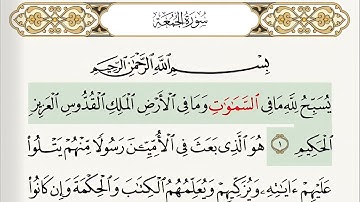 سُورَةُ الجُمُعَةِ
بِسْمِ اللَّهِ الرَّحْمَٰنِ الرَّحِيمِ
يُسَبِّحُ لِلَّهِ مَا فِي السَّمَٰوَٰتِ وَمَا فِي الْأَرْضِ الْمَلِكِ الْقُدُّوسِ الْعَزِيزِ
الْحَكِيمِ ١ هُوَ الَّذِي بَعَثَ فِي الْأُمِّيِّـۧنَ رَسُولًا مِّنْهُمْ يَتْلُوا۟
عَلَيْهِمْ ءَايَٰتِهِۦ وَيُزَكِّيهِمْ وَيُعَلِّمُهُمُ الْكِتَٰبَ وَالْحِكْمَةَ وَإِن كَانُوا۟